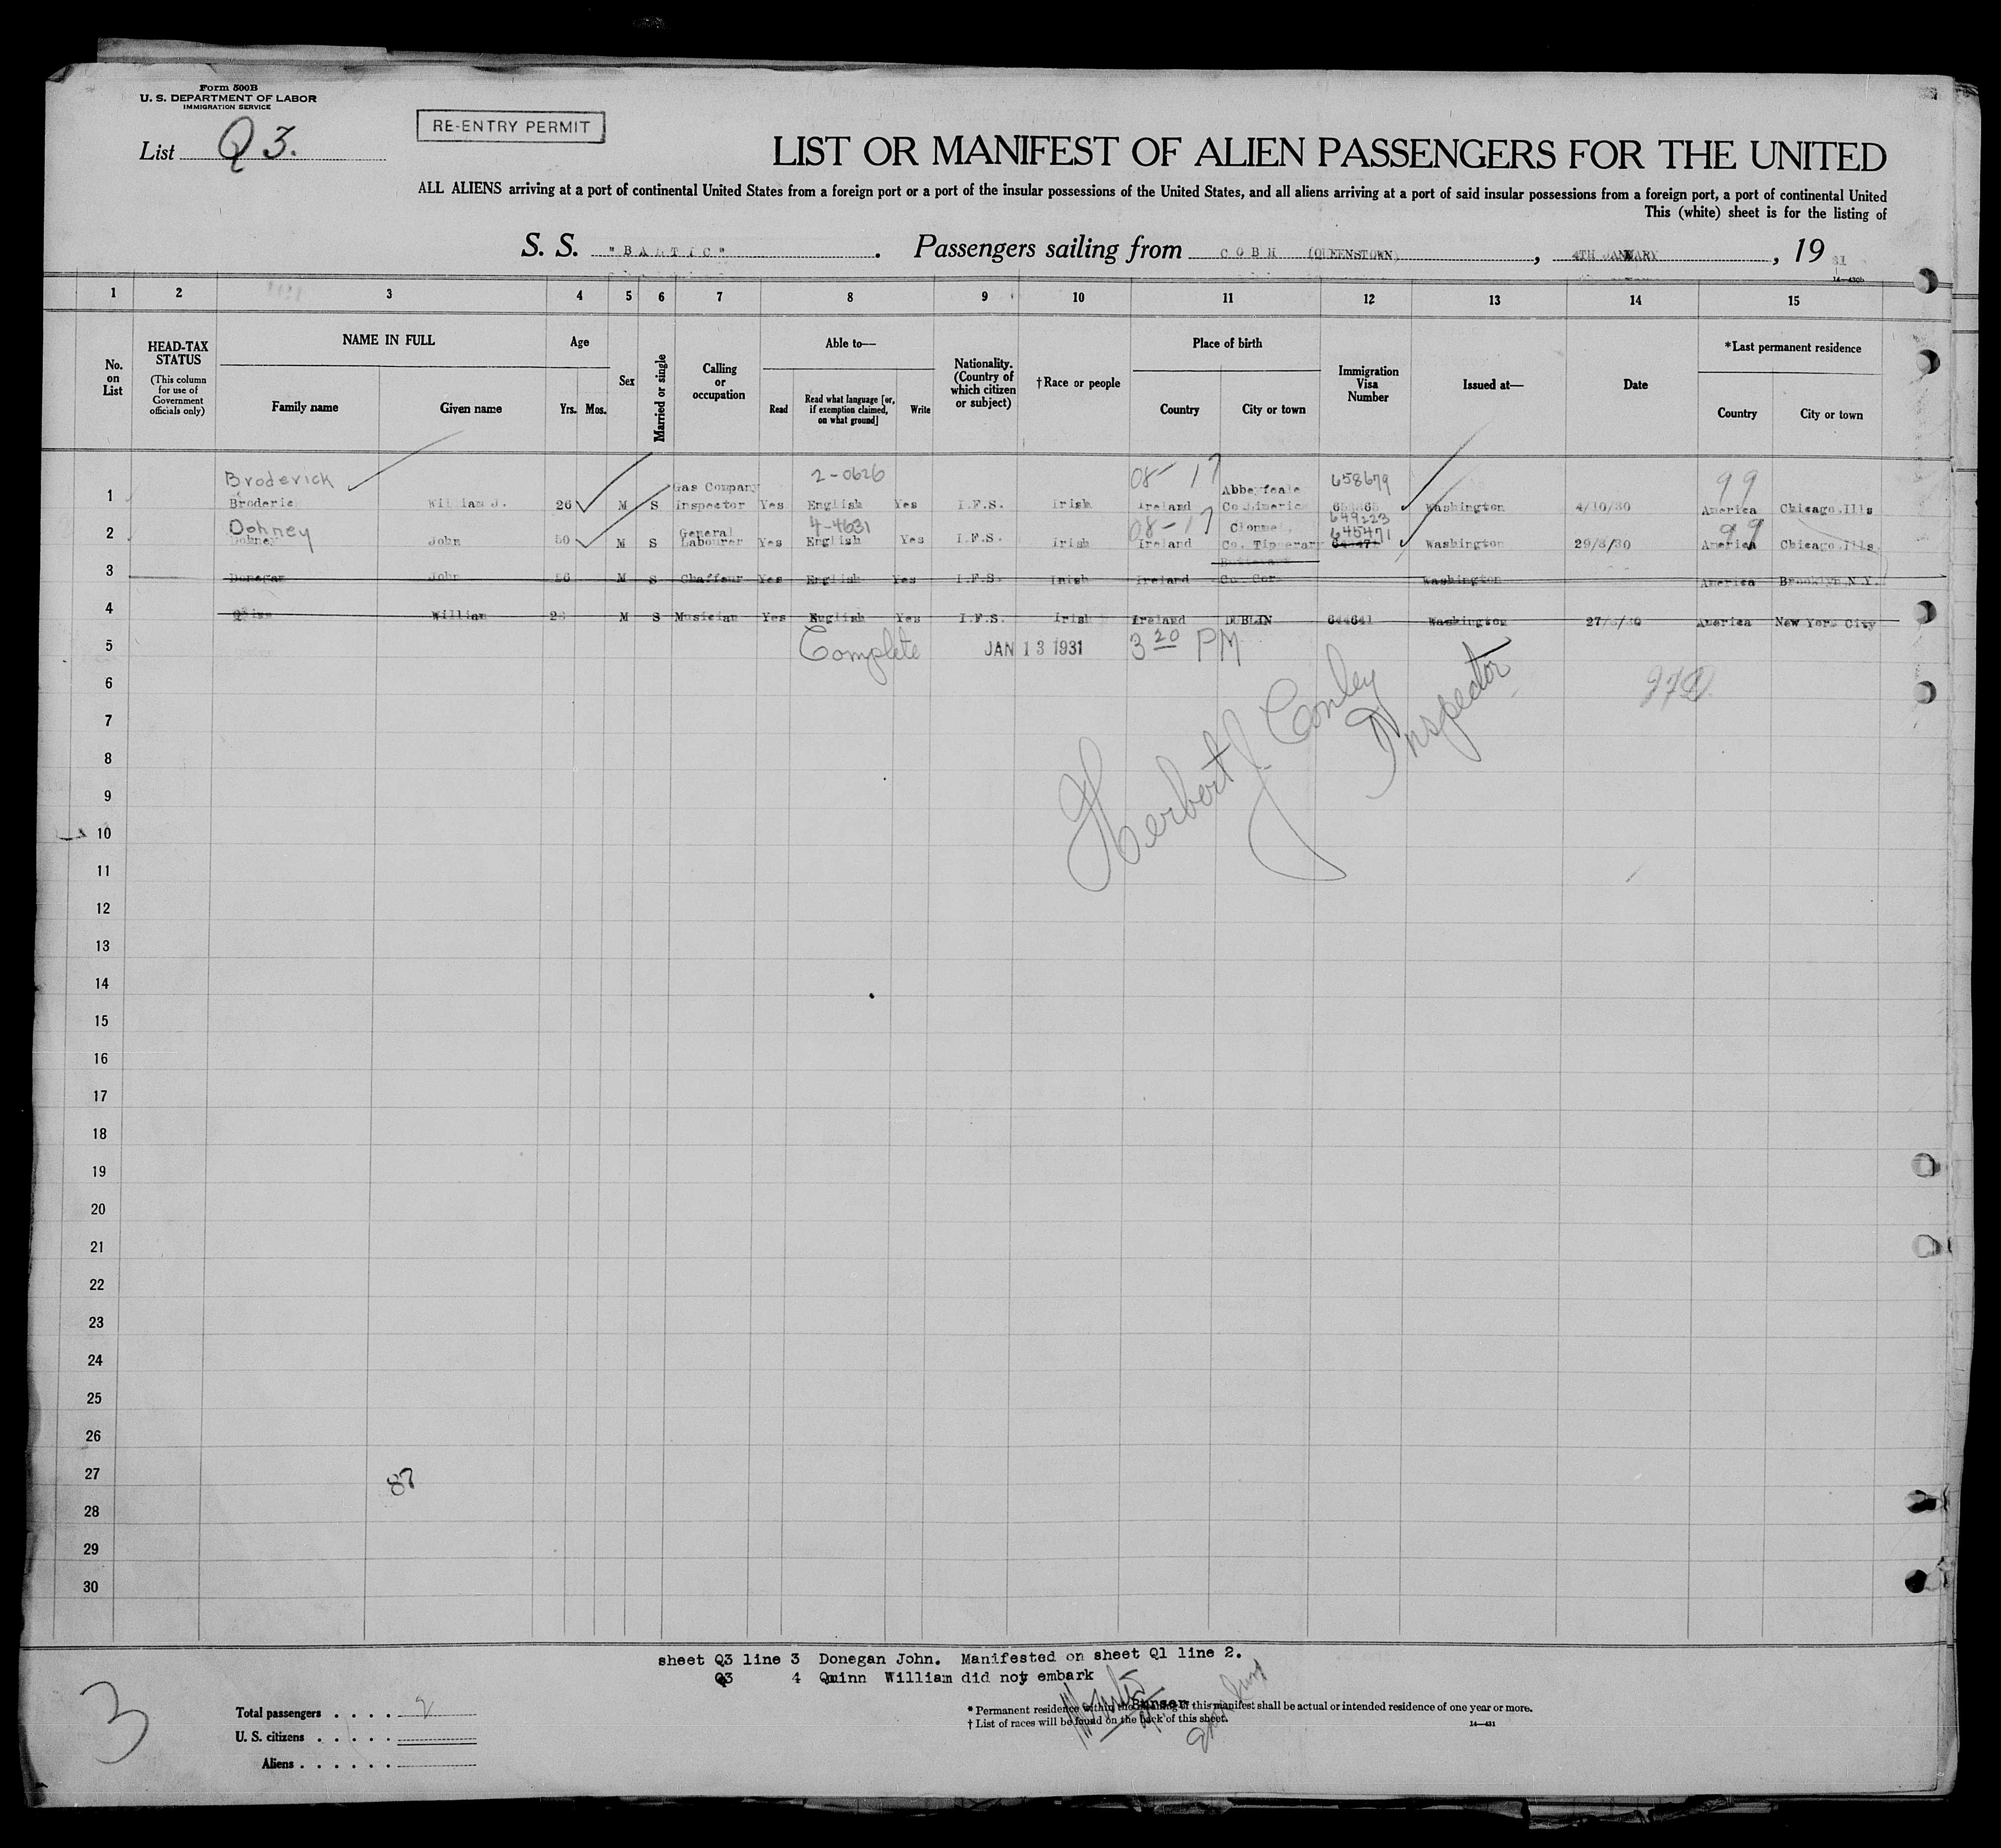 Form 500B
U. S. DEPARTMENT OF LABOR
IMMIGRATION SERVICE
List Q 3.
RE-ENTRY PERMIT
LIST OR MANIFEST OF ALIEN PASSENGERS FOR THE UNITED
ALL ALIENS arriving at a port of continental United States from a foreign port or a port of the insular possessions of the United States, and all aliens arriving at a port of said insular possessions from a foreign port, a port of continental United
This (white) sheet is for the listing of
S. S. "BALTIC" . Passengers sailing from COBH (QUEENSTOWN) , 4TH JANUARY , 19 31
14—430b
1 2 3 4 5 6 7 8 9 10 11 12 13 14 15
No. on List
HEAD-TAX STATUS (This column for use of Government officials only)
NAME IN FULL
Family name Given name
Age
Yrs. Mos.
Sex
Married or single
Calling or occupation
Able to—
Read Read what language [or, if exemption claimed, on what ground] Write
Nationality. (Country of which citizen or subject)
†Race or people
Place of birth
Country City or town
Immigration Visa Number
Issued at—
Date
*Last permanent residence
Country City or town
Broderick 2-0626 08-17 658679 99
Gas Company Abbeyfeale
1 Broderic William J. 26 M S Inspector Yes English Yes I.F.S. Irish Ireland Co.Limeric Washington 4/10/30 America Chicago.Ills
649223
Dohney General 4-4631 08-17 Clonmel 645471 99
2 Dohney John 50 M S Labourer Yes English Yes I.F.S. Irish Ireland Co. Tipperary Washington 29/8/30 America Chicago.Ills.
3 Donegan John 56 M S Chaffeur Yes English Yes I.F.S. Irish Ireland Co. Cor Washington America Brooklyn.N.Y.
4 William M S Musician Yes English Yes I.F.S. Irish Ireland DUBLIN 644641 Washington America New York City
5 Complete JAN 13 1931 3 20 PM
Herbert J. Conley
Inspector
6
7
8
9
10
11
12
13
14
15
16
17
18
19
20
21
22
23
24
25
26
27
87
28
29
30
sheet Q3 line 3 Donegan John. Manifested on sheet Q1 line 2.
Q3 4 Quinn William did not embark
3
Total passengers . . . . 2
U. S. citizens . . . . .
Aliens . . . . . .
Purser
* Permanent residence within the meaning of this manifest shall be actual or intended residence of one year or more.
† List of races will be found on the back of this sheet.
14—431